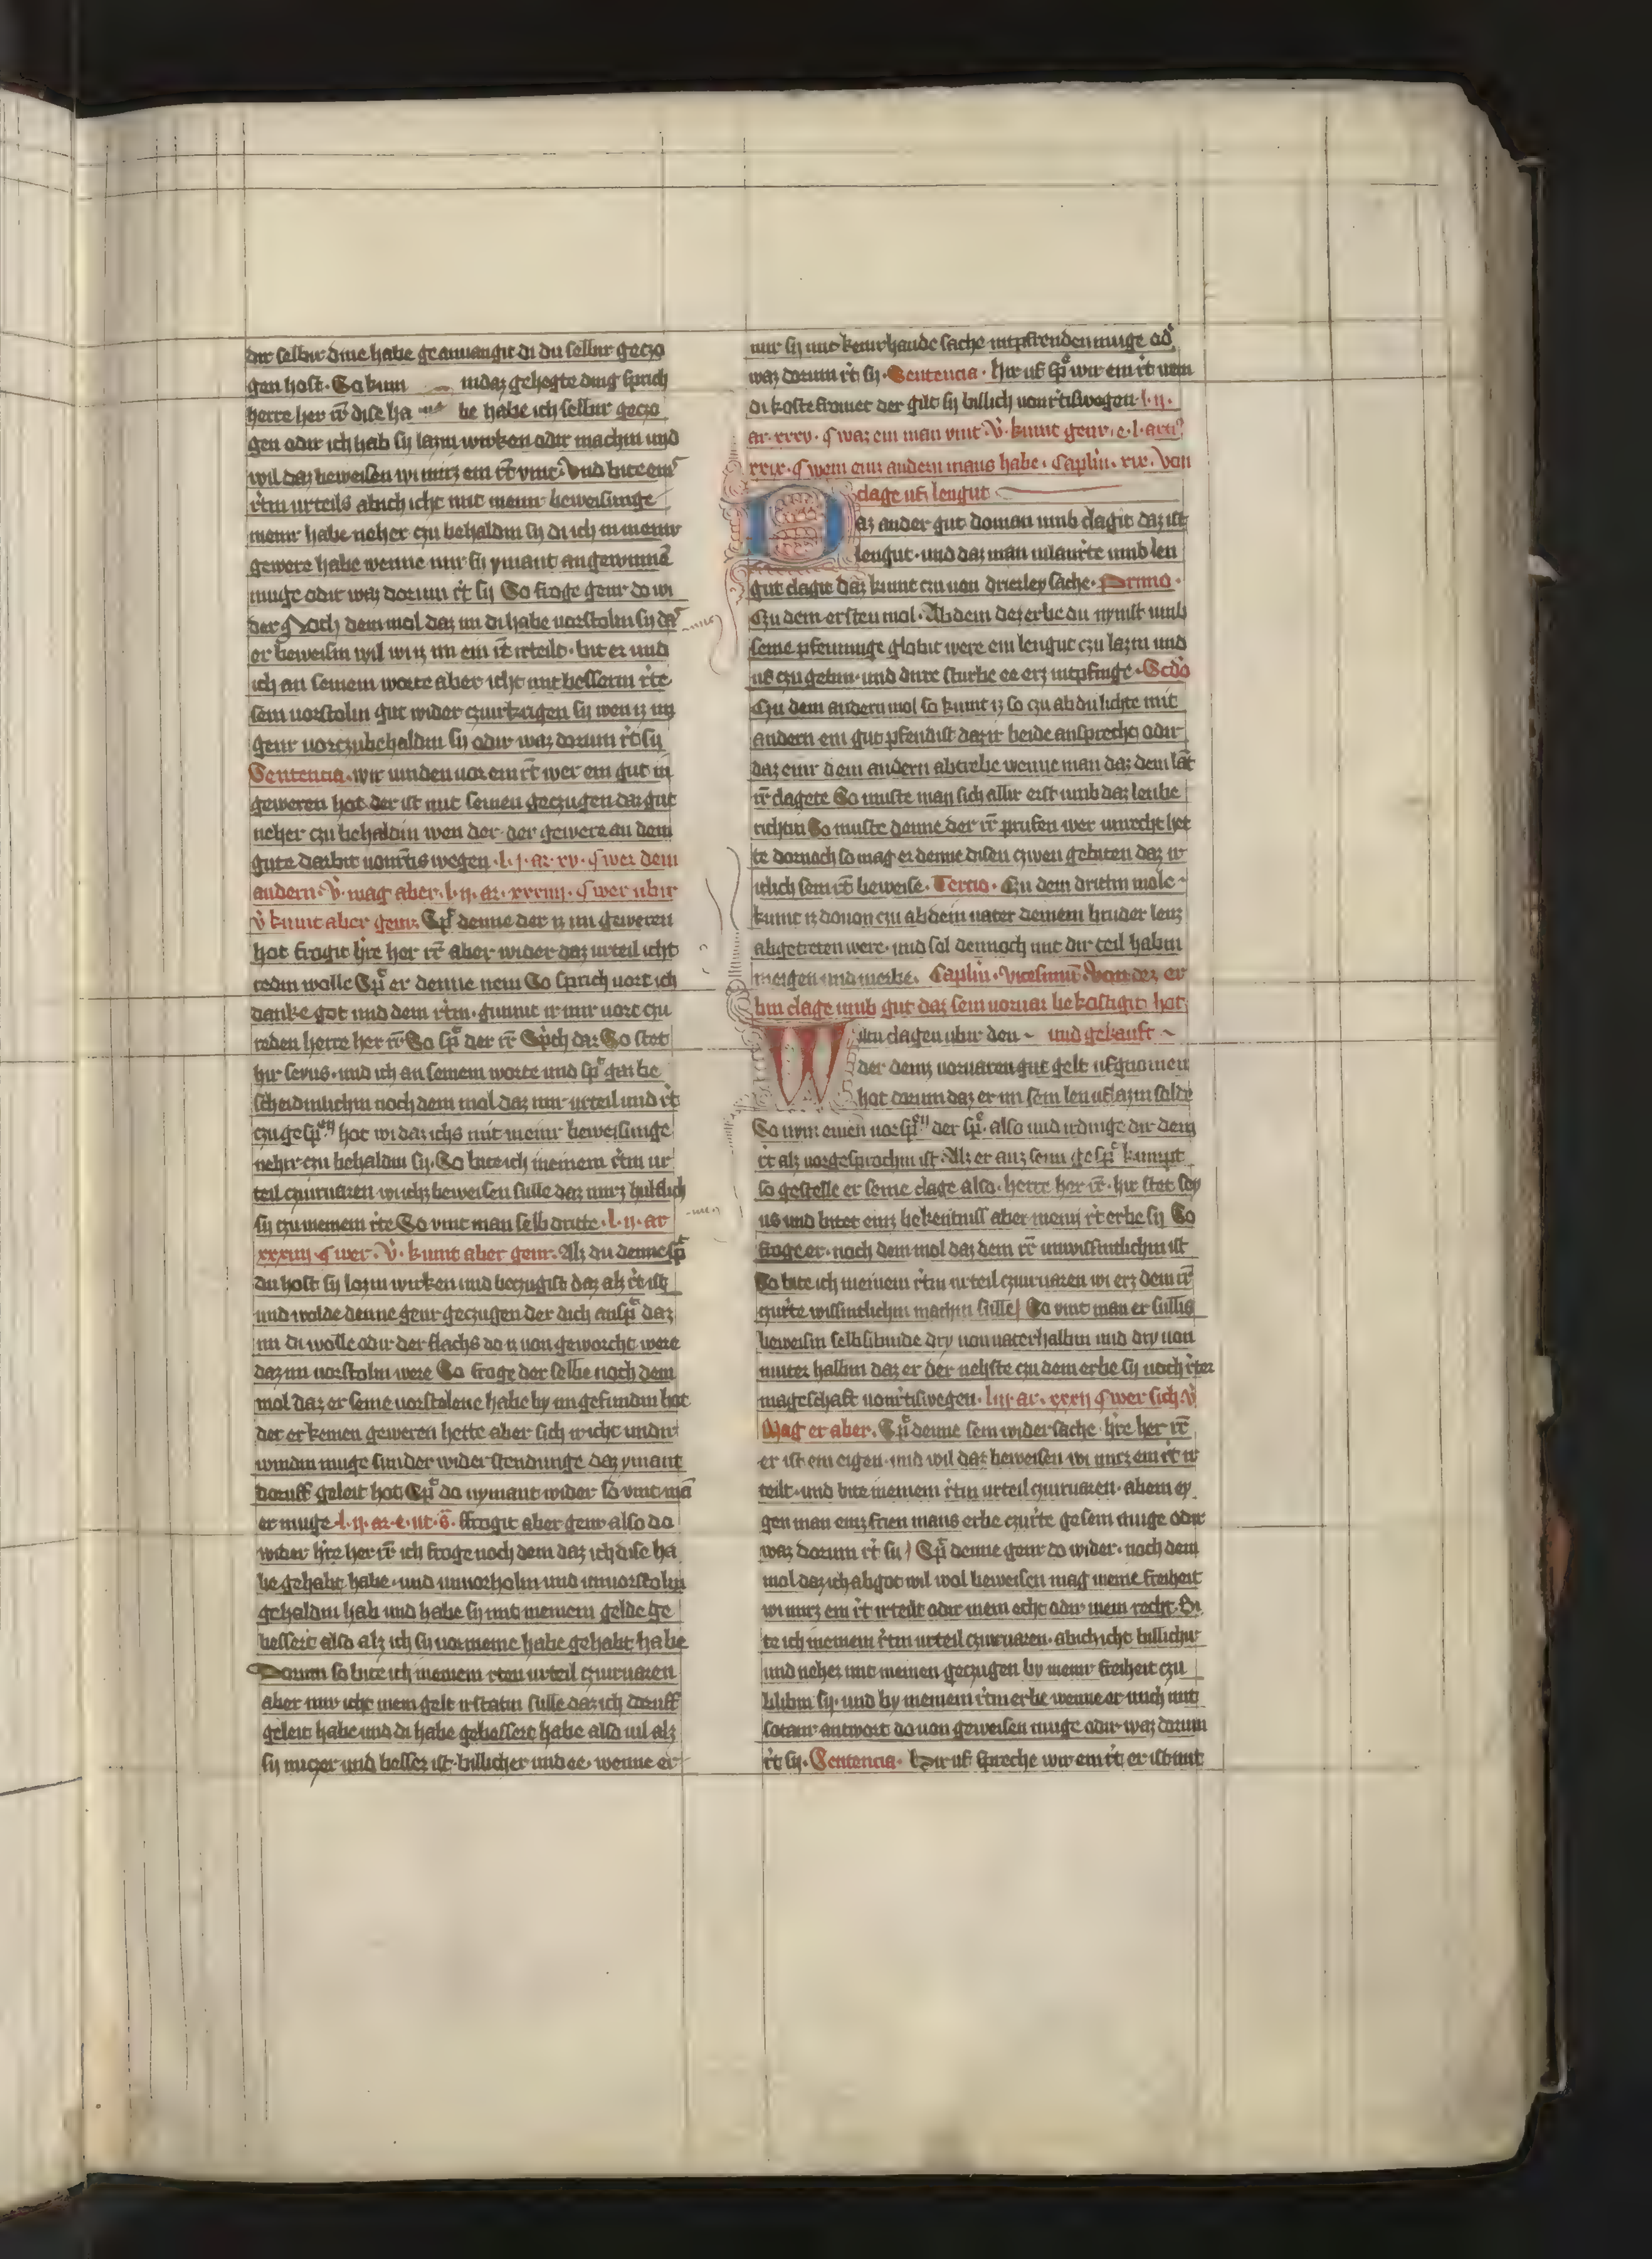 dir selbir dine habe geanuangit di du selbir geczo
gen host. So kum in daz gehegte ding sprich
herre her ir̄ dise ha be habe ich selbir geczo
gen odir ich hab sy lazin wirken odir machin und
wil daz beweisen wi mirz ein r̄t vint. Und bite em̄
r̄tin urteils ab ich icht mit meinir beweisunge
meinir habe neher czu behaldin sy di ich in meinir
gewere habe wenne mir sy ymant angewinnē
muge odir waz dorum r̄t sy So froge genir do wi
der Noch dem mol daz im di habe vorstolin sy daz
er beweisin wil wi iz im ein r̄t irteilt. bit er und
ich an seinem worte aber icht mit besserm r̄te
sein vorstolin gut wider czuirkrigen sy wen iz im
genir vorczubehaldin sy odir waz dorum r̄t sy
Sentencia. wir vinden vor ein r̄t wer ein gut in
geweren hot der ist mit seinen geczugen daz gut
neher czu behaldin wen der. der gewere an dem
gute darbit vom r̄tis wegen. l. j. ar. xv. ¶ wer dem
andern. V̄. mag aber. l. ij. ar. xxxiiij. ¶ wer ubir
v̄ kumt aber genir. Sp̄t denne der iz im geweren
hot frogit h̄re her ir̄ aber wider daz urteil icht
redin wolle Sp̄t er denne nein So sprich vort ich
danke got und dem r̄tin. gunnit ir mir vort czu
reden herre her ir̄ So sp̄t der ir̄ Sp̄ch daz So stet
hir seyus. und ich an seinem worte und sp̄t gar be
scheidinlichin noch dem mol daz mir urteil und r̄t
czugesp̄n hot wi daz ichs mit meinir beweisunge
nehir czu behaldin sy. So bite ich meinem r̄tin ur
teil czuirvaren wi ichz beweisen sulle daz mirz hulflich
sy czu meinem r̄te So vint man selb dritte. l. ij. ar
xxxiiij ¶ wer. V̄. kumt aber genir. Alz du denne sp̄t
du host sy lozin wirken und beczugist daz alz r̄t ist
und wolde denne genir geczugen der dich ansp̄t daz
im di wolle odir der flachs do iz von geworcht were
daz im vorstolin were So froge der selbe noch dem
mol daz er seine vorstolene habe by im gefundin hot
der er keinen geweren hette aber sich icht undir
windin muge sundir widerstendunge daz ymant
doruff geleit hot Sp̄t do nymant wider so vint mā
er muge. l. ij. ar. e. ut. s̄. ffrogit aber genir also do
wider h̄re her ir̄ ich froge noch dem daz ich dise ha
be gehabt habe. und unvorholin und unvorstolin
gehaldin hab und habe sy mit meinem gelde ge
bessert also alz ich sy vor meine habe gehabt habe
Dorum so bite ich meinem r̄ten urteil czuirvaren
aber mir icht mein gelt irstatin sulle daz ich doruff
geleit habe und di habe gebessert habe also vil alz
sy niczer und besser ist. billicher und ee. wenne er
mir sy mit keinirhande sache intpfrenden muge od̄
waz dorum r̄t sy. Sentencia. hir uf sp̄t wir ein r̄t nem
di koste fromet der gilt sy billich vom r̄tiswegen. l. ij.
ar. xxxv. ¶ waz ein man vint. V̄. kumt genir. e. l. arti.
xxix. ¶ wem ein andern mans habe. Caplm. xix. Von
clage uf lengut
Daz ander gut doman umb clagit daz ist
lengut. und daz man inlantrte umb len
gut clagit daz kumt czu von drierley sache. Primo.
Czu dem ersten mol. Ab dem dez erbe du nymst umb
seine pfenninge globit were ein lengut czu lazin und
uf czu gebin. und dirre sturbe ee erz intpfinge. Scdo
Czu dem andern mol so kumt iz so czu ab du lichte mit
andern ein gut pfendist daz ir beide anspreche odir
daz einir dem andern abtribe wenne man daz dem lāt
ir̄ clagete So muste man sich allir erst umb daz leube
richtin So muste denne der ir̄ prufen wer unrecht het
te dornoch so mag er denne disen czwen gebiten daz ir
itlich sein r̄t beweise. Tercio. Czu dem dritin mole.
kumt iz dovon czu ab dein vater deinem bruder lenz
abgetreten were. und sol dennoch mit dir teil habin
meigen und merke. Caplm. vicesimū. Von dez er
bin clage umb gut daz sein vorvar bekostigit hot
Wiltu clagen ubir den ~ und gekauft ~
der deinz vorvaren gut gelt ufgnomen
hot dorum daz er im sein len uflazin solde
So nym einen vorsp̄n der sp̄t. also und irdinge dir dem
r̄t alz vorgesprochin ist. Alz er anz sein gesp̄t kumpt
so gestelle er seine clage also. herre her ir̄. hir stet sey
us und bitet einz bekentniss aber meim r̄t erbe sy So
froge er. noch dem mol daz dem ir̄ unwissintlichin ist
So bite ich meinem r̄tin urteil czuirvaren wi erz dem ir̄
czurte wissintlichin machin sulle So vint man er sullis
beweisin selbsibinde dry von vaterhalbin und dry von
muter halbin daz er der nehste czu dem erbe sy noch r̄ter
mageschaft vom r̄tiswegen. l iij ar. xxxij ¶ wer sich. v̄
Mag er aber. Sp̄t denne sein widersache. h̄re her ir̄
er ist ein eigen. und wil daz beweisen wi mirz ein r̄t ir
teilt. und bite meinem r̄tin urteil czuirvaren. ab ein ey
gen man einz frien mans erbe czurte gesein muge odir
waz dorum r̄t sy Sp̄t denne genir do wider. noch dem
mol daz ich abgot wil wol beweisen mag meine freiheit
wi mirz ein r̄t irteilt odir mein echt odir mein recht. Bi
te ich meinem r̄tin urteil czuirvaren. ab ich icht billichir
und neher mit meinen geczugen by meinir freiheit czu
blibin sy. und by meinem r̄tin erbe wenne er mich mit
sotanir antwort dovon geweisen muge odir waz dorum
r̄t sy. Sentencia. Hir uf spreche wir ein r̄t er ist mit